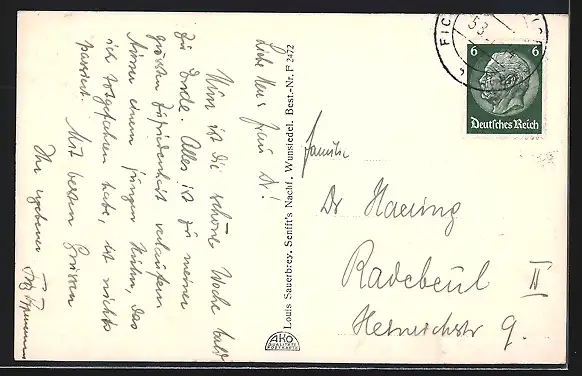 Liebe Frau Dr!
Nun ist die schöne Woche bald
zu Ende. Alles ist zu meiner
grössten Zufriedenheit verlaufen.
Ausser einem jungen Huhn, das
ich totgefahren habe, ist nichts
passiert. Mit besten Grüssen
Ihr ergebener
Louis Sauerbrey, Senfft's Nachf. Wunsiedel. Best.-Nr. F 2472
AKO
6 6
Deutsches Reich
FIC
Familie
Dr Haering
Radebeul II
Heinrichstr 9.